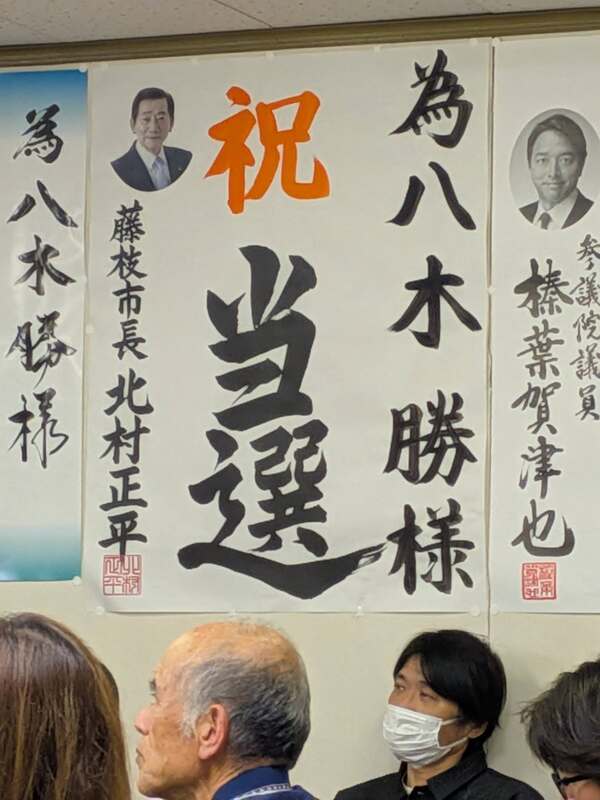 参議院議員
榛葉賀津也
為八木勝様
祝
当選
藤枝市長 北村正平
為八木勝様